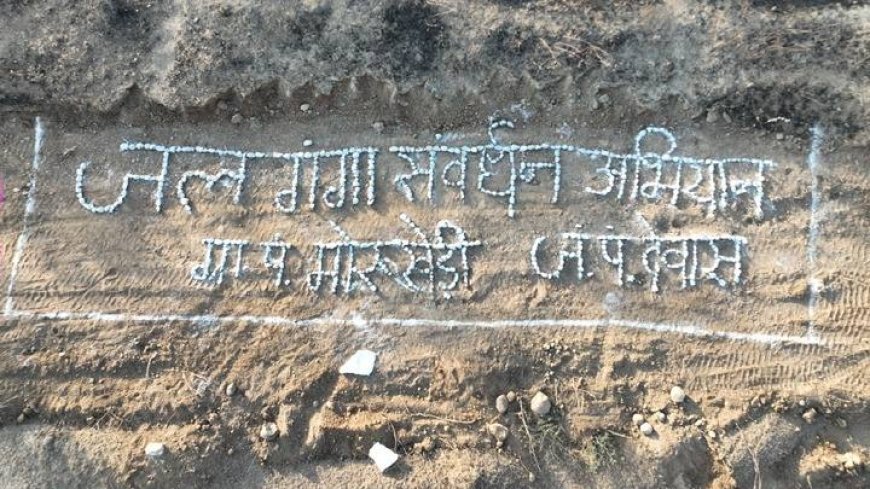 जल गंगा संवर्धन अभियान
ग्रा.पं. मोरूखेड़ी जं.पं. देवास